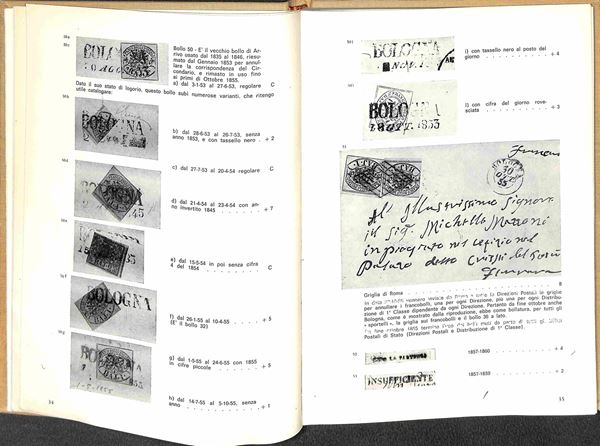 50a
BOLOGNA
Bollo 50 - E' il vecchio bollo di Ar-
rivo usato dal 1835 al 1846, riesu-
mato dal Gennaio 1853 per annul-
lare la corrispondenza del Cir-
condario, e rimasto in uso fino
ai primi di Ottobre 1855.
a) dal 3-1-53 al 27-6-53, regolare C
Dato il suo stato di logorio, questo bollo subì numerose varianti, che ritengo
utile catalogare:
50b
BOLOGNA
b) dal 28-6-53 al 26-7-53, senza
anno 1853, e con tassello nero . + 2
c) dal 27-7-53 al 20-4-54 regolare C
50d
BOLOGNA
45
d) dal 21-4-54 al 23-4-54 con an-
no invertito 1845 + 7
50e
e) dal 15-5-54 in poi senza cifra
4 del 1854 C
50f
BOLOGNA
f) dal 26-1-55 al 10-4-55 + 5
(E' il bollo 32)
50g
BOLOGNA
g) dal 1-5-55 al 24-6-55 con 1855
in cifre piccole + 5
h) dal 14-7-55 al 5-10-55, senza
anno + 1
34
50i
BOLOGNA
i) con tassello nero al posto del
giorno + 4
BOLOGNA
1853
l) con cifra del giorno rove-
sciata + 3
51
BOLOGNA
30
55
Al Illustrissimo Signore
il Sig. Michelle
impiegato nel
Palazzo
Ferrara
Griglia di Roma 8
per annullare i francobolli, una per ogni Direzione, più una per ogni Distribu-
zione di 1ª Classe dipendente da ogni Direzione. Pertanto da fine ottobre anche
Bologna, come è mostrato dalla riproduzione, ebbe come bollatura, per tutti gli
« sportelli », la griglia sui francobolli e il bollo 38 a lato.
Postali di Stato (Direzioni Postali e Distribuzione di 1ª Classe).
52
DOPO LA PARTENZA
1857-1860 + 4
53
INSUFFICIENTE
1857-1859 + 2
35